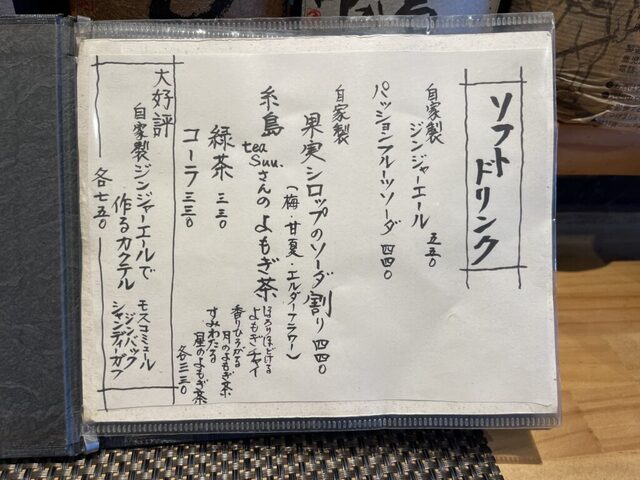 ソフトドリンク
自家製
ジンジャーエール 五五〇
パッションフルーツソーダ 四四〇
自家製
果実シロップのソーダ割り 四四〇
(梅・甘夏・エルダーフラワー)
糸島
tea
Suu.
さんのよもぎ茶
ほろりほどける
よもぎチャイ
香りひろがる
月のよもぎ茶
すみわたる
星のよもぎ茶
各三三〇
緑茶 三三〇
コーラ 三三〇
大好評
自家製ジンジャーエールで
作るカクテル
モスコミュール
ジンバック
シャンディーガフ
各七五〇